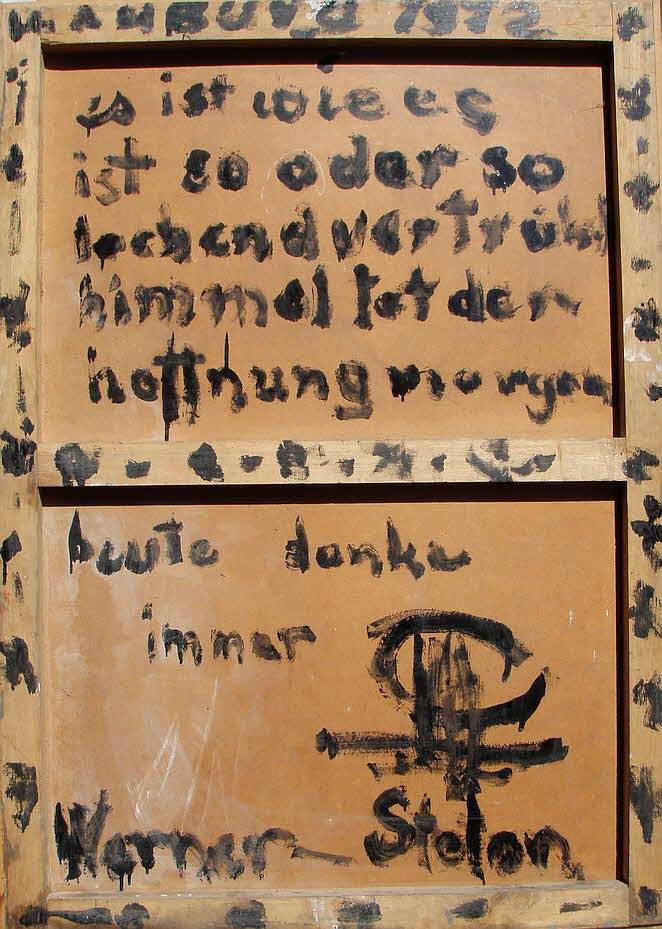 HAMBURG 1972
is ist wie es
ist so oder so
lachend vertrübt
himmel tat der
hoffnung morgen
heute danke
immer
Werner - Stefan